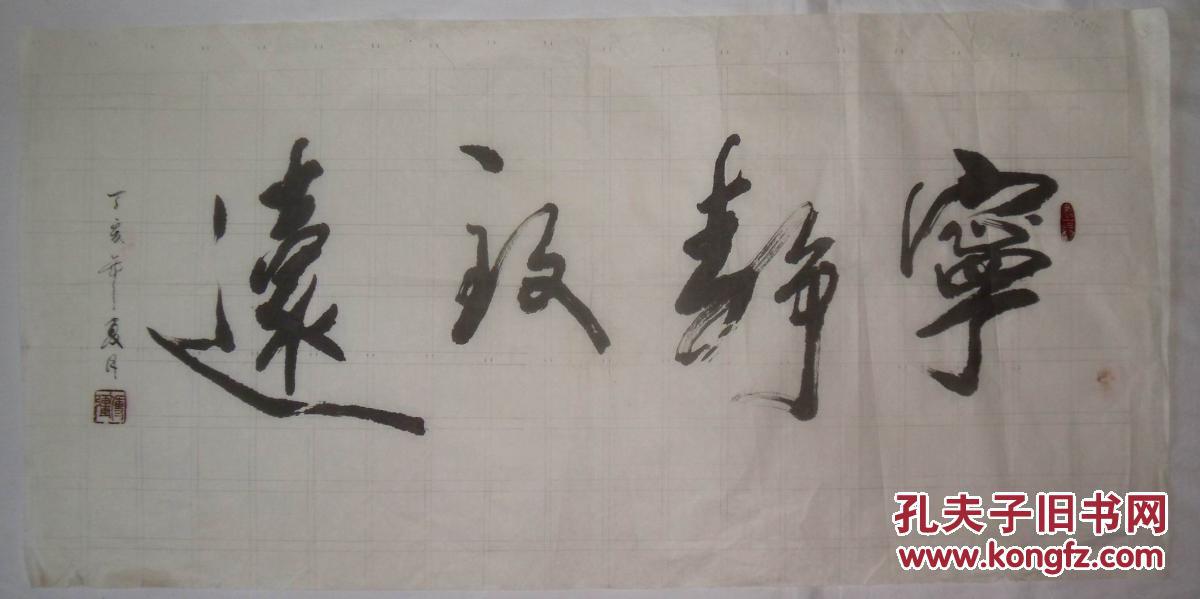 寧靜致遠
丁亥年夏月
孔夫子旧书网
www.kongfz.com